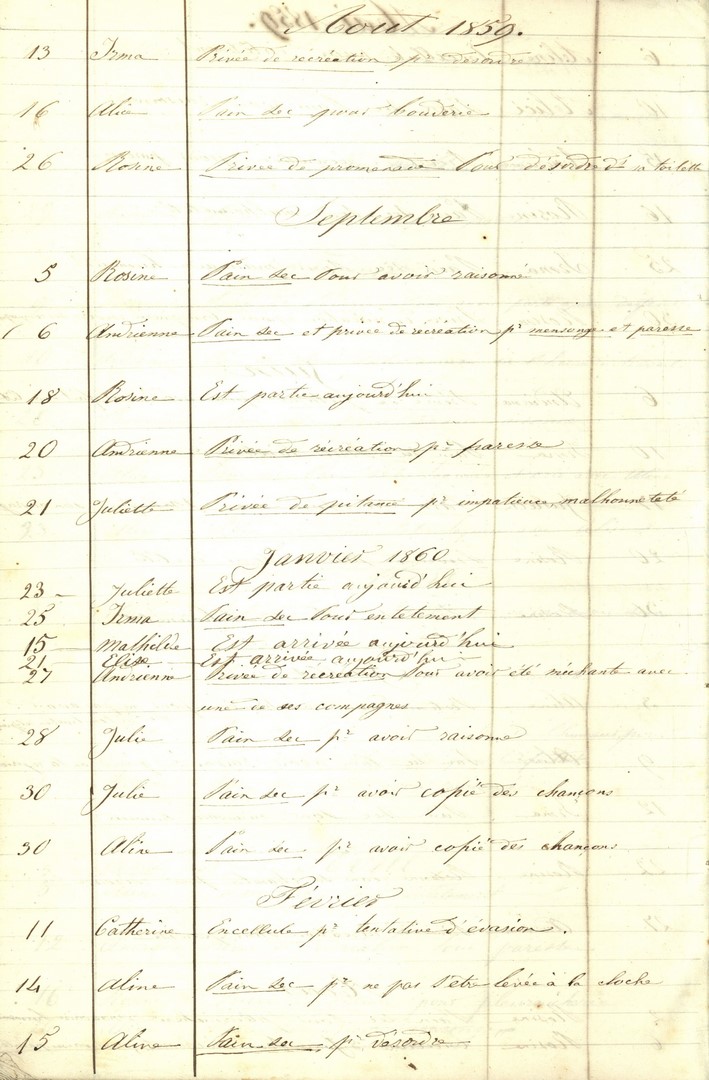 Aout 1859.
13 Irma Privée de récréation pr désordre
16 Alice Pain sec pour bouderie
26 Rosine Privée de promenade Pour désordre ds sa toilette
Septembre
5 Rosine Pain sec Pour avoir raisonné
6 Andrienne Pain sec et privée de récréation pr mensonge et paresse
18 Rosine Est partie aujourd'hui
20 Andrienne Privée de récréation pr paresse
21 Juliette Privée de pitance pr impatience, malhonneteté
Janvier 1860
23 - Juliette Est partie aujourd'hui
25 Irma Pain sec Pour entetement
15 Mathilde Est arrivée aujourd'hui
21 Elisa Est arrivée aujourd'hui
27 Andrienne Privée de récréation Pour avoir été méchante avec
une de ses compagnes
28 Julie Pain sec pr avoir raisonné
30 Julie Pain sec pr avoir copié des chançons
30 Aline Pain sec pr avoir copié des chançons
Février
11 Catherine Encellule pr tentative d'évasion.
14 Aline Pain sec pr ne pas s'etre levée à la cloche
15 Aline Pain sec, pr désordre